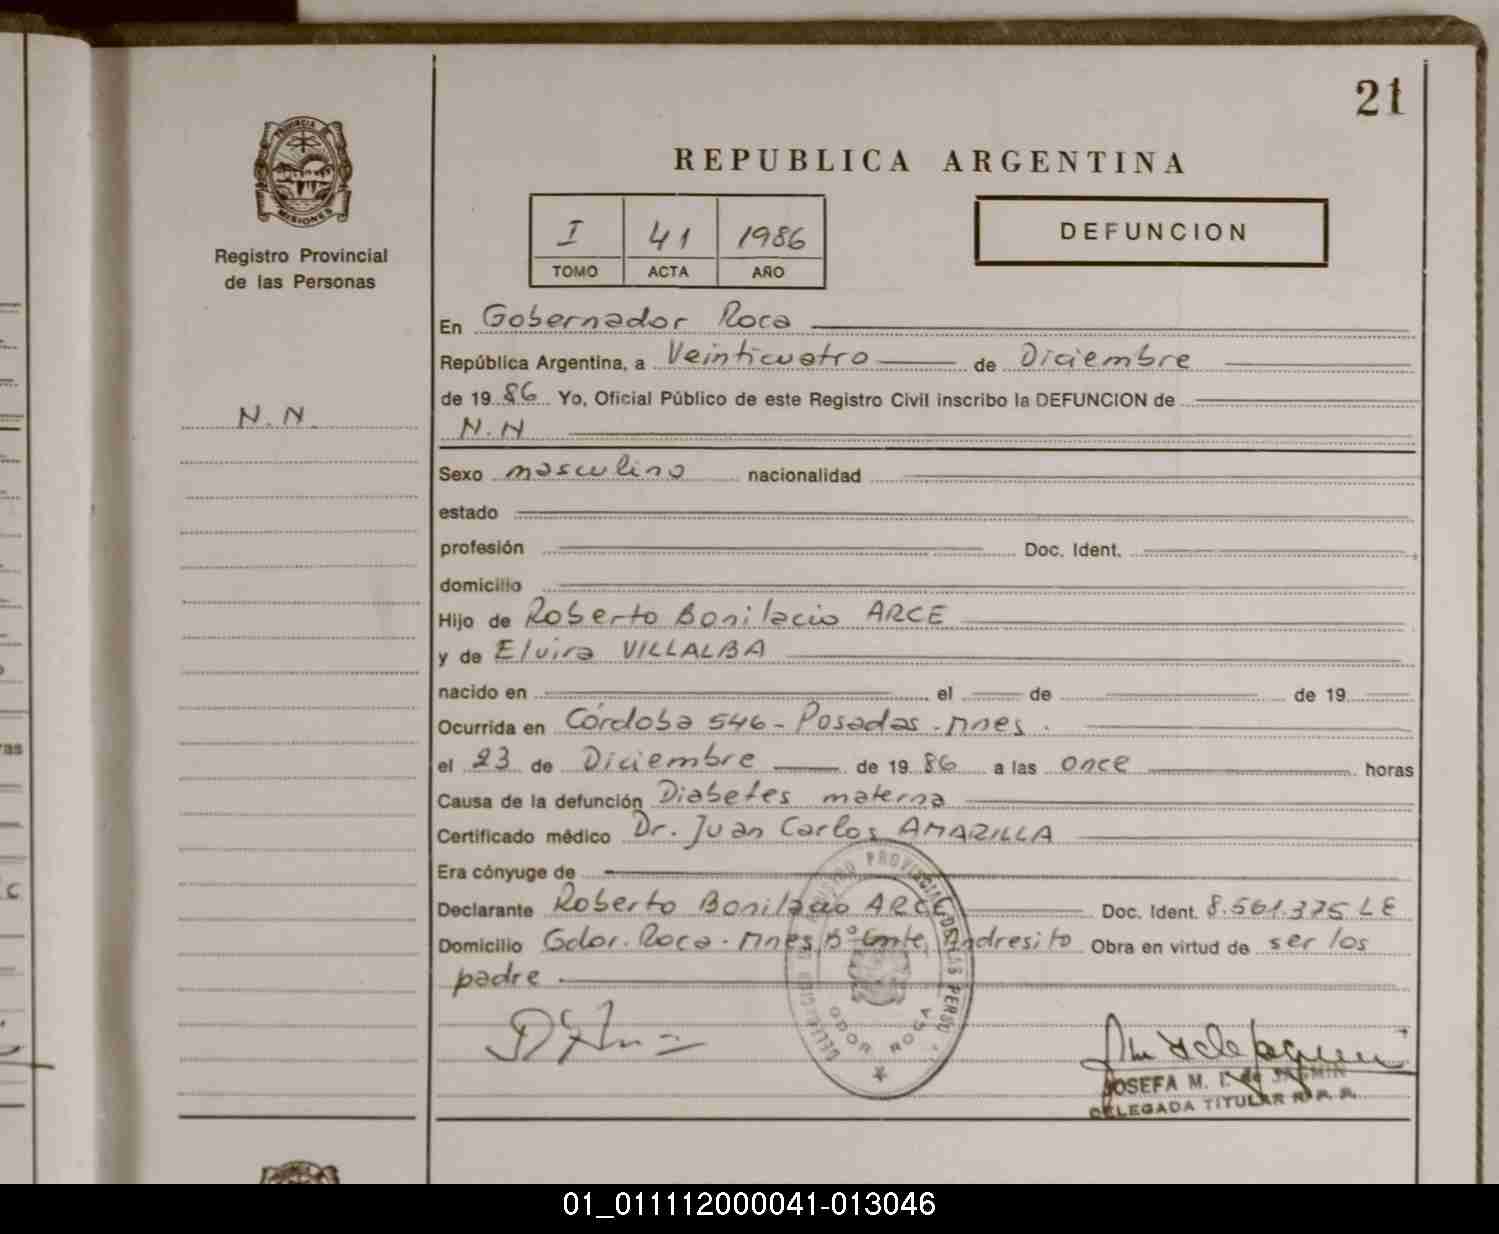 21
PROVINCIA DE
MISIONES
Registro Provincial
de las Personas
N.N.
REPUBLICA ARGENTINA
I 41 1986
TOMO ACTA AÑO
DEFUNCION
En Gobernador Roca
República Argentina, a Veinticuatro de Diciembre
de 19 86 Yo, Oficial Público de este Registro Civil inscribo la DEFUNCION de
N.N
Sexo masculino nacionalidad
estado
profesión Doc. Ident.
domicilio
Hijo de Roberto Bonifacio ARCE
y de Elvira VILLALBA
nacido en el de de 19
Ocurrida en Córdoba 546 - Posadas - Mnes.
el 23 de Diciembre de 19 86 a las once horas
Causa de la defunción Diabetes materna
Certificado médico Dr. Juan Carlos AMARILLA
Era cónyuge de
Declarante Roberto Bonifacio ARCE Doc. Ident. 8.561.375 LE
Domicilio Gdor. Roca - Mnes Bº Cmte. Andresito Obra en virtud de ser los
padre
GDOR ROCA
JOSEFA M. de JASMIN
DELEGADA TITULAR R. P. P.
01_011112000041-013046